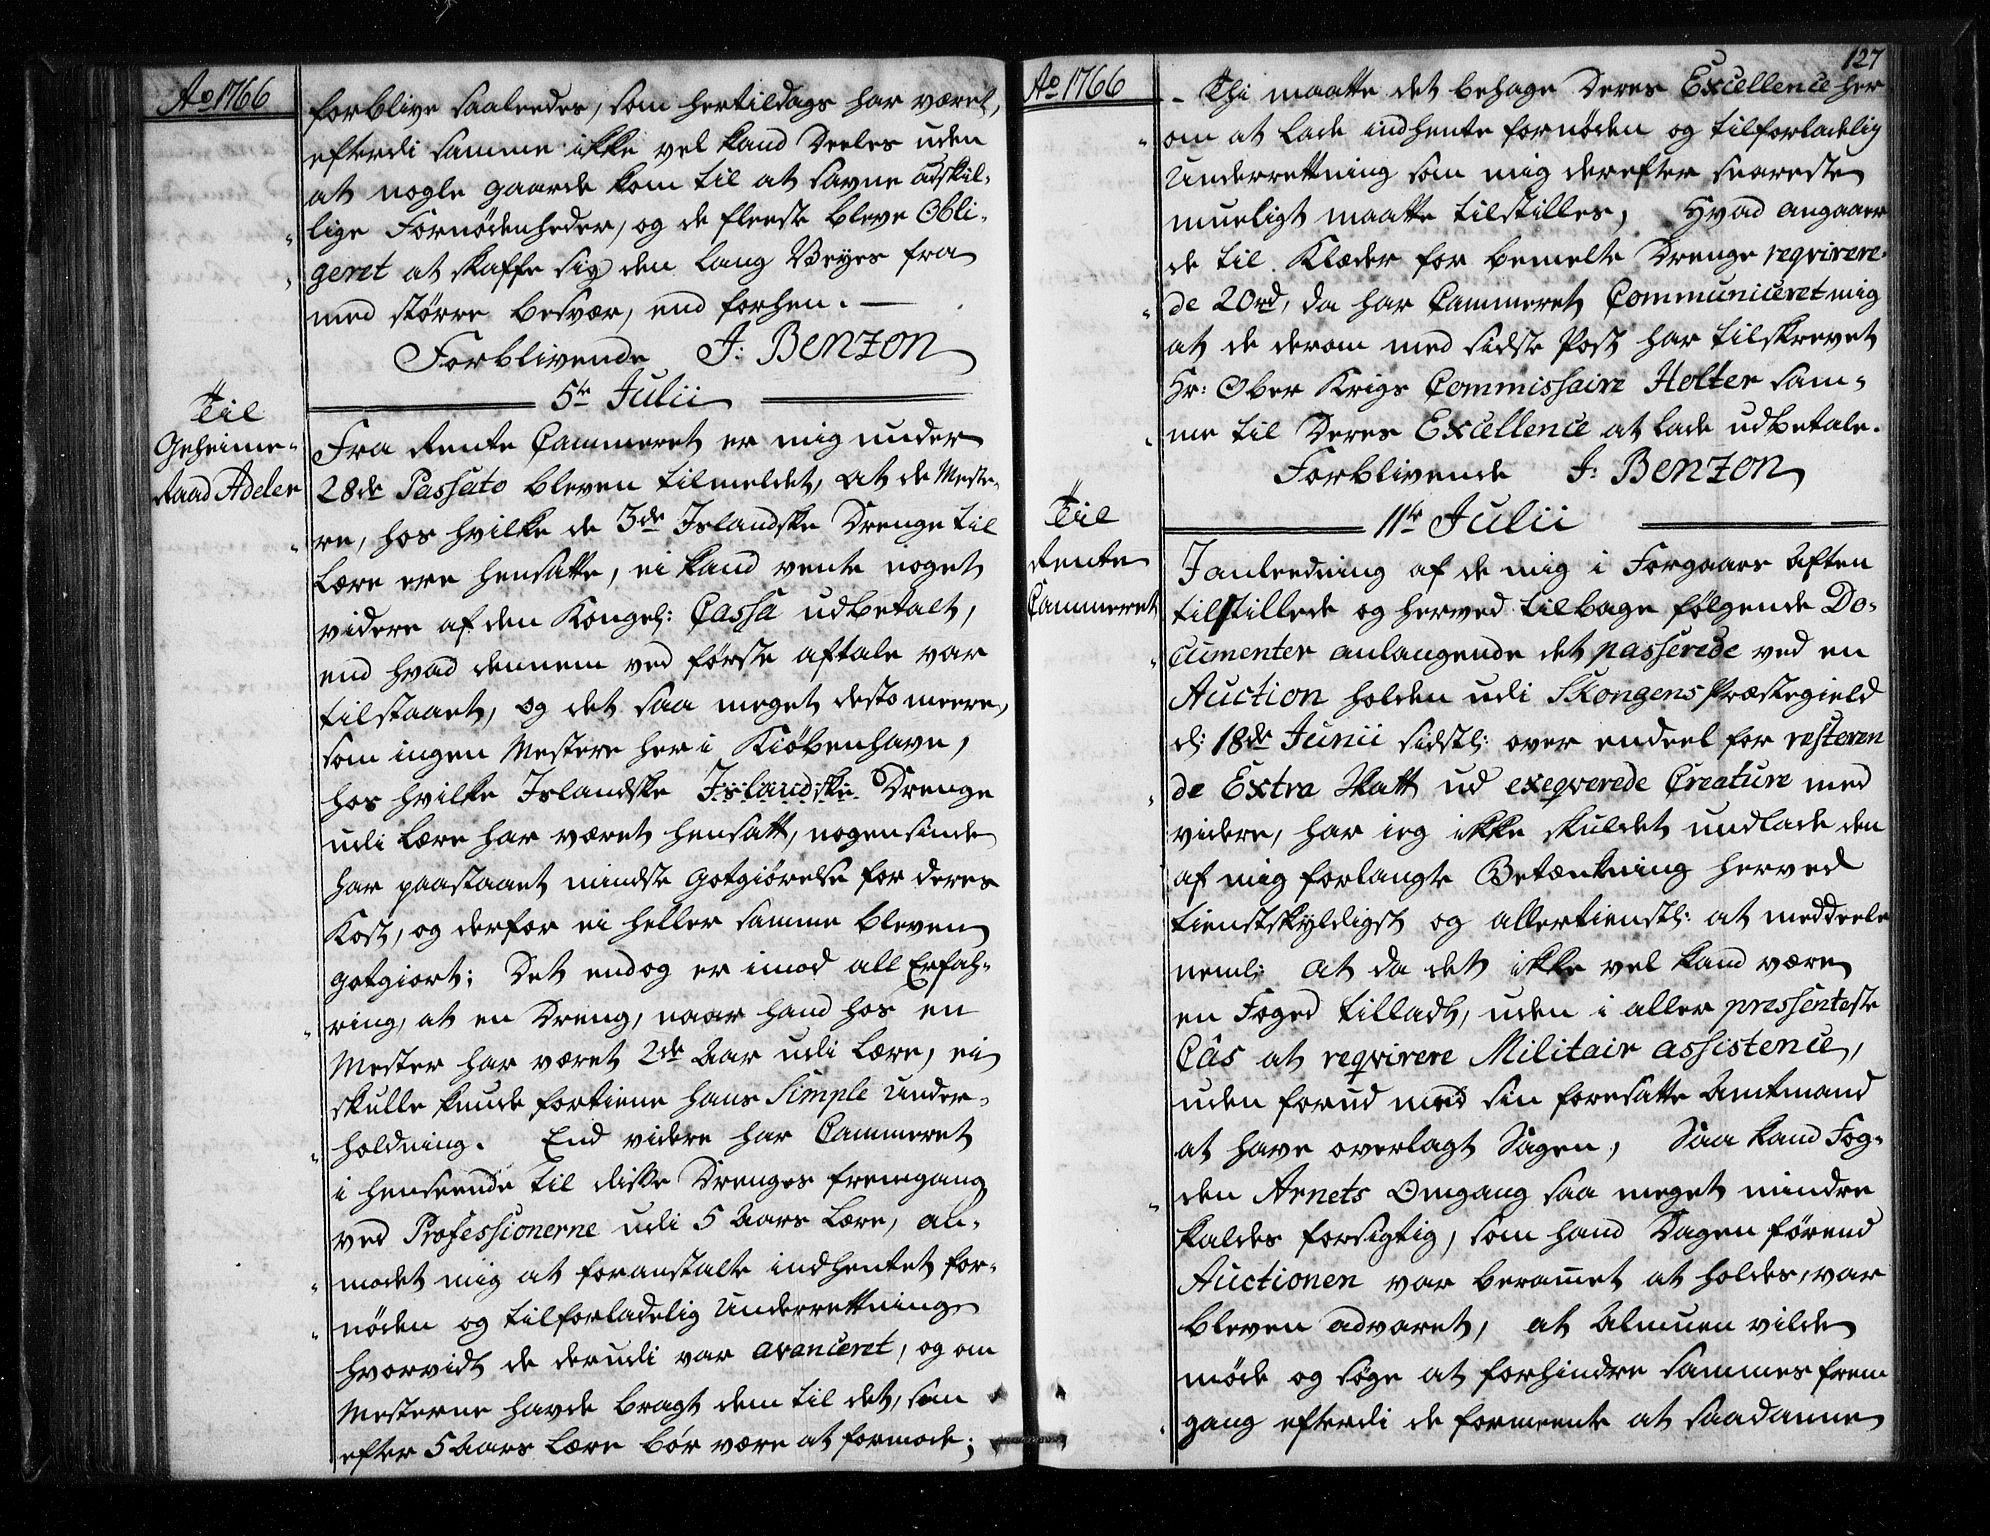 Ao 1766
forblive saaleedes, som hertildags har været,
efterdi samme ikke vel kand deeles uden
at nogle gaarde kom til at savne adskil-
lige Fornødenheder, og de fleeste bleve Obli-
geret at skaffe sig den lang Veyes fra
med større besvær, end forhen. —
Forblivende J: Benzon
5te Julii
Til
Geheime-
Raad Adeler
Fra Rente Cammeret er mig under
28de Passato bleven tilmeldet, at de Meste-
re, hos hvilke de 3de Islandske Drenge til
Lære ere hensatte, ei kand vente noget
videre af den Kongel: Cassa udbetalt,
end hvad dennem ved første aftale var
tilstaaet, og det saa meget desto meere,
som ingen Mestere her i Kiøbenhavn,
hos hvilke Islandske Islandske Drenge
udi Lære har været hensatt, nogensinde
har paastaaet mindste Gotgiørelse for deres
Kost, og derfor ei heller samme bleven
gotgiort; Det endog er imod all Erfah-
ring, at en Dreng, naar hand hos en
Mester har været 2de Aar udi Lære, ei
skulle kunde fortiene hans Simple Under-
holdning. End videre har Cammeret
i henseende til disse Drenges fremgang
ved Professionerne udi 5 Aars Lære, an-
modet mig at foranstalte indhentet for-
nøden og tilforladelig Underrettning
hvorvidt de derudi var avanceret, og om
Mesterne havde bragt dem til det, som
efter 5 Aars Lære bør være at formode;
127
Ao 1766
- Thi maatte det behage Deres Excellence her
om at lade indhente fornøden og tilforladelig
Underrettning som mig derefter snareste
mueligt maatte tilstilles, Hvad angaaer
de til Klæder for bemelte Drenge reqvirere-
de 20rd, da har Cammeret Communiceret mig
at de derom med sidste Post har tilskrevet
Hr: Ober Krigs Commissaire Holter sam-
me til Deres Excellence at lade udbetale.
Forblivende J: Benzon
11te Julii
Til
Rente
Cammeret
I anleedning af de mig i Forgaars Aften
tilstillede og herved tilbage følgende Do-
cumenter anlangende det passerede ved en
Auction holden udi Skongens Præstegield
d: 18de Junii sidstl: over endeel for resteren
de Extra Skatt ud exeqverede Creature med
videre, har ieg ikke skuldet undlade den
af mig forlangte Betænkning herved
tienstskyldigst og allertienstl: at meddeele
neml: at da det ikke vel kand være
en Foged tilladt, uden i aller pressenteste
Câs at reqvirere Militair assistence,
uden forud med sin foresatte Amtmand
at have overlagt Sagen, Saa kand Fog-
den Arnets Omgang saa meget mindre
kaldes forsigtig, som hand Dagen førend
Auctionen var beramet at holdes, var
bleven advaret, at Almuen vilde
møde og søge at forhindre sammes frem
gang efterdi de formeente at saadanne